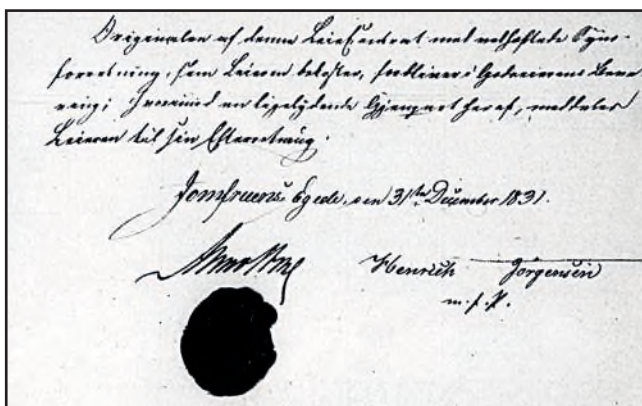 Originalen af denne Leiecontract med vedhæftede Syns-
forretning, som Leieren bekoster, forbliver i Godseierens Beva-
ring; hvorimod en ligelydende Gjenpart heraf, meddeles
Leieren til sin Efterretning.
Jomfruens Egede, den 31te December 1831.
Henrich Jörgensen
m. f. P.